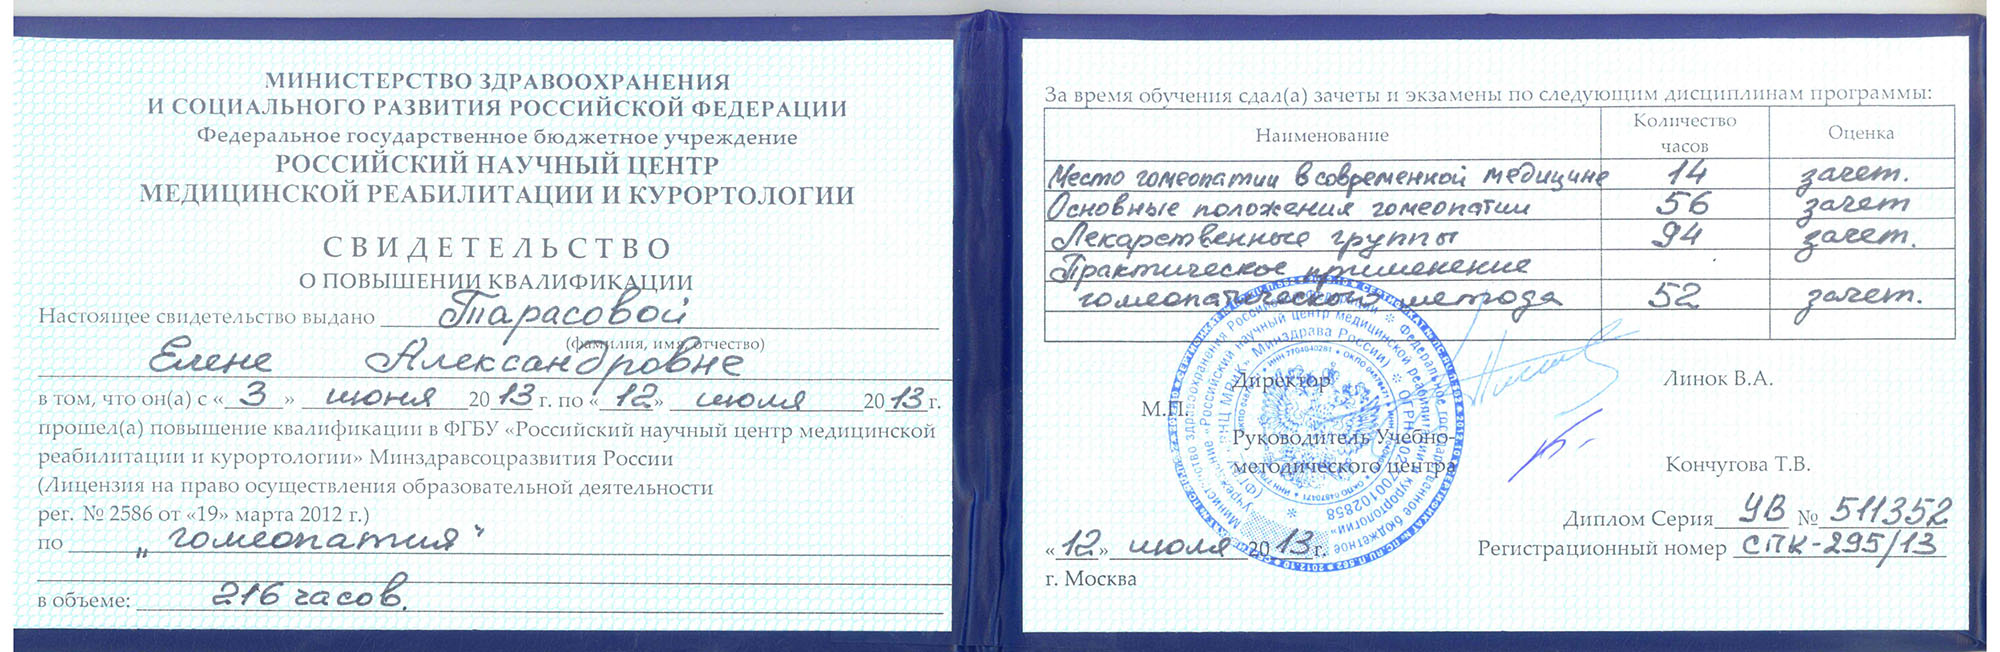 МИНИСТЕРСТВО ЗДРАВООХРАНЕНИЯ
И СОЦИАЛЬНОГО РАЗВИТИЯ РОССИЙСКОЙ ФЕДЕРАЦИИ
Федеральное государственное бюджетное учреждение
РОССИЙСКИЙ НАУЧНЫЙ ЦЕНТР
МЕДИЦИНСКОЙ РЕАБИЛИТАЦИИ И КУРОРТОЛОГИИ
СВИДЕТЕЛЬСТВО
О ПОВЫШЕНИИ КВАЛИФИКАЦИИ
Настоящее свидетельство выдано Тарасовой
(фамилия, имя, отчество)
Елене Александровне
в том, что он(а) с «3» июня 2013 г. по «12» июля 2013 г.
прошел(а) повышение квалификации в ФГБУ «Российский научный центр медицинской
реабилитации и курортологии» Минздравсоцразвития России
(Лицензия на право осуществления образовательной деятельности
рег. № 2586 от «19» марта 2012 г.)
по „гомеопатия“
в объеме: 216 часов.
За время обучения сдал(а) зачеты и экзамены по следующим дисциплинам программы:
Наименование Количество часов Оценка
Место гомеопатии в современной медицине 14 зачет.
Основные положения гомеопатии 56 зачет
Лекарственные группы 94 зачет.
Практическое применение
гомеопатического метода 52 зачет.
Директор Линок В.А.
М.П.
Руководитель Учебно-
методического центра Кончугова Т.В.
Диплом Серия УВ № 511352
«12» июля 2013 г. Регистрационный номер СПК-295/13
г. Москва